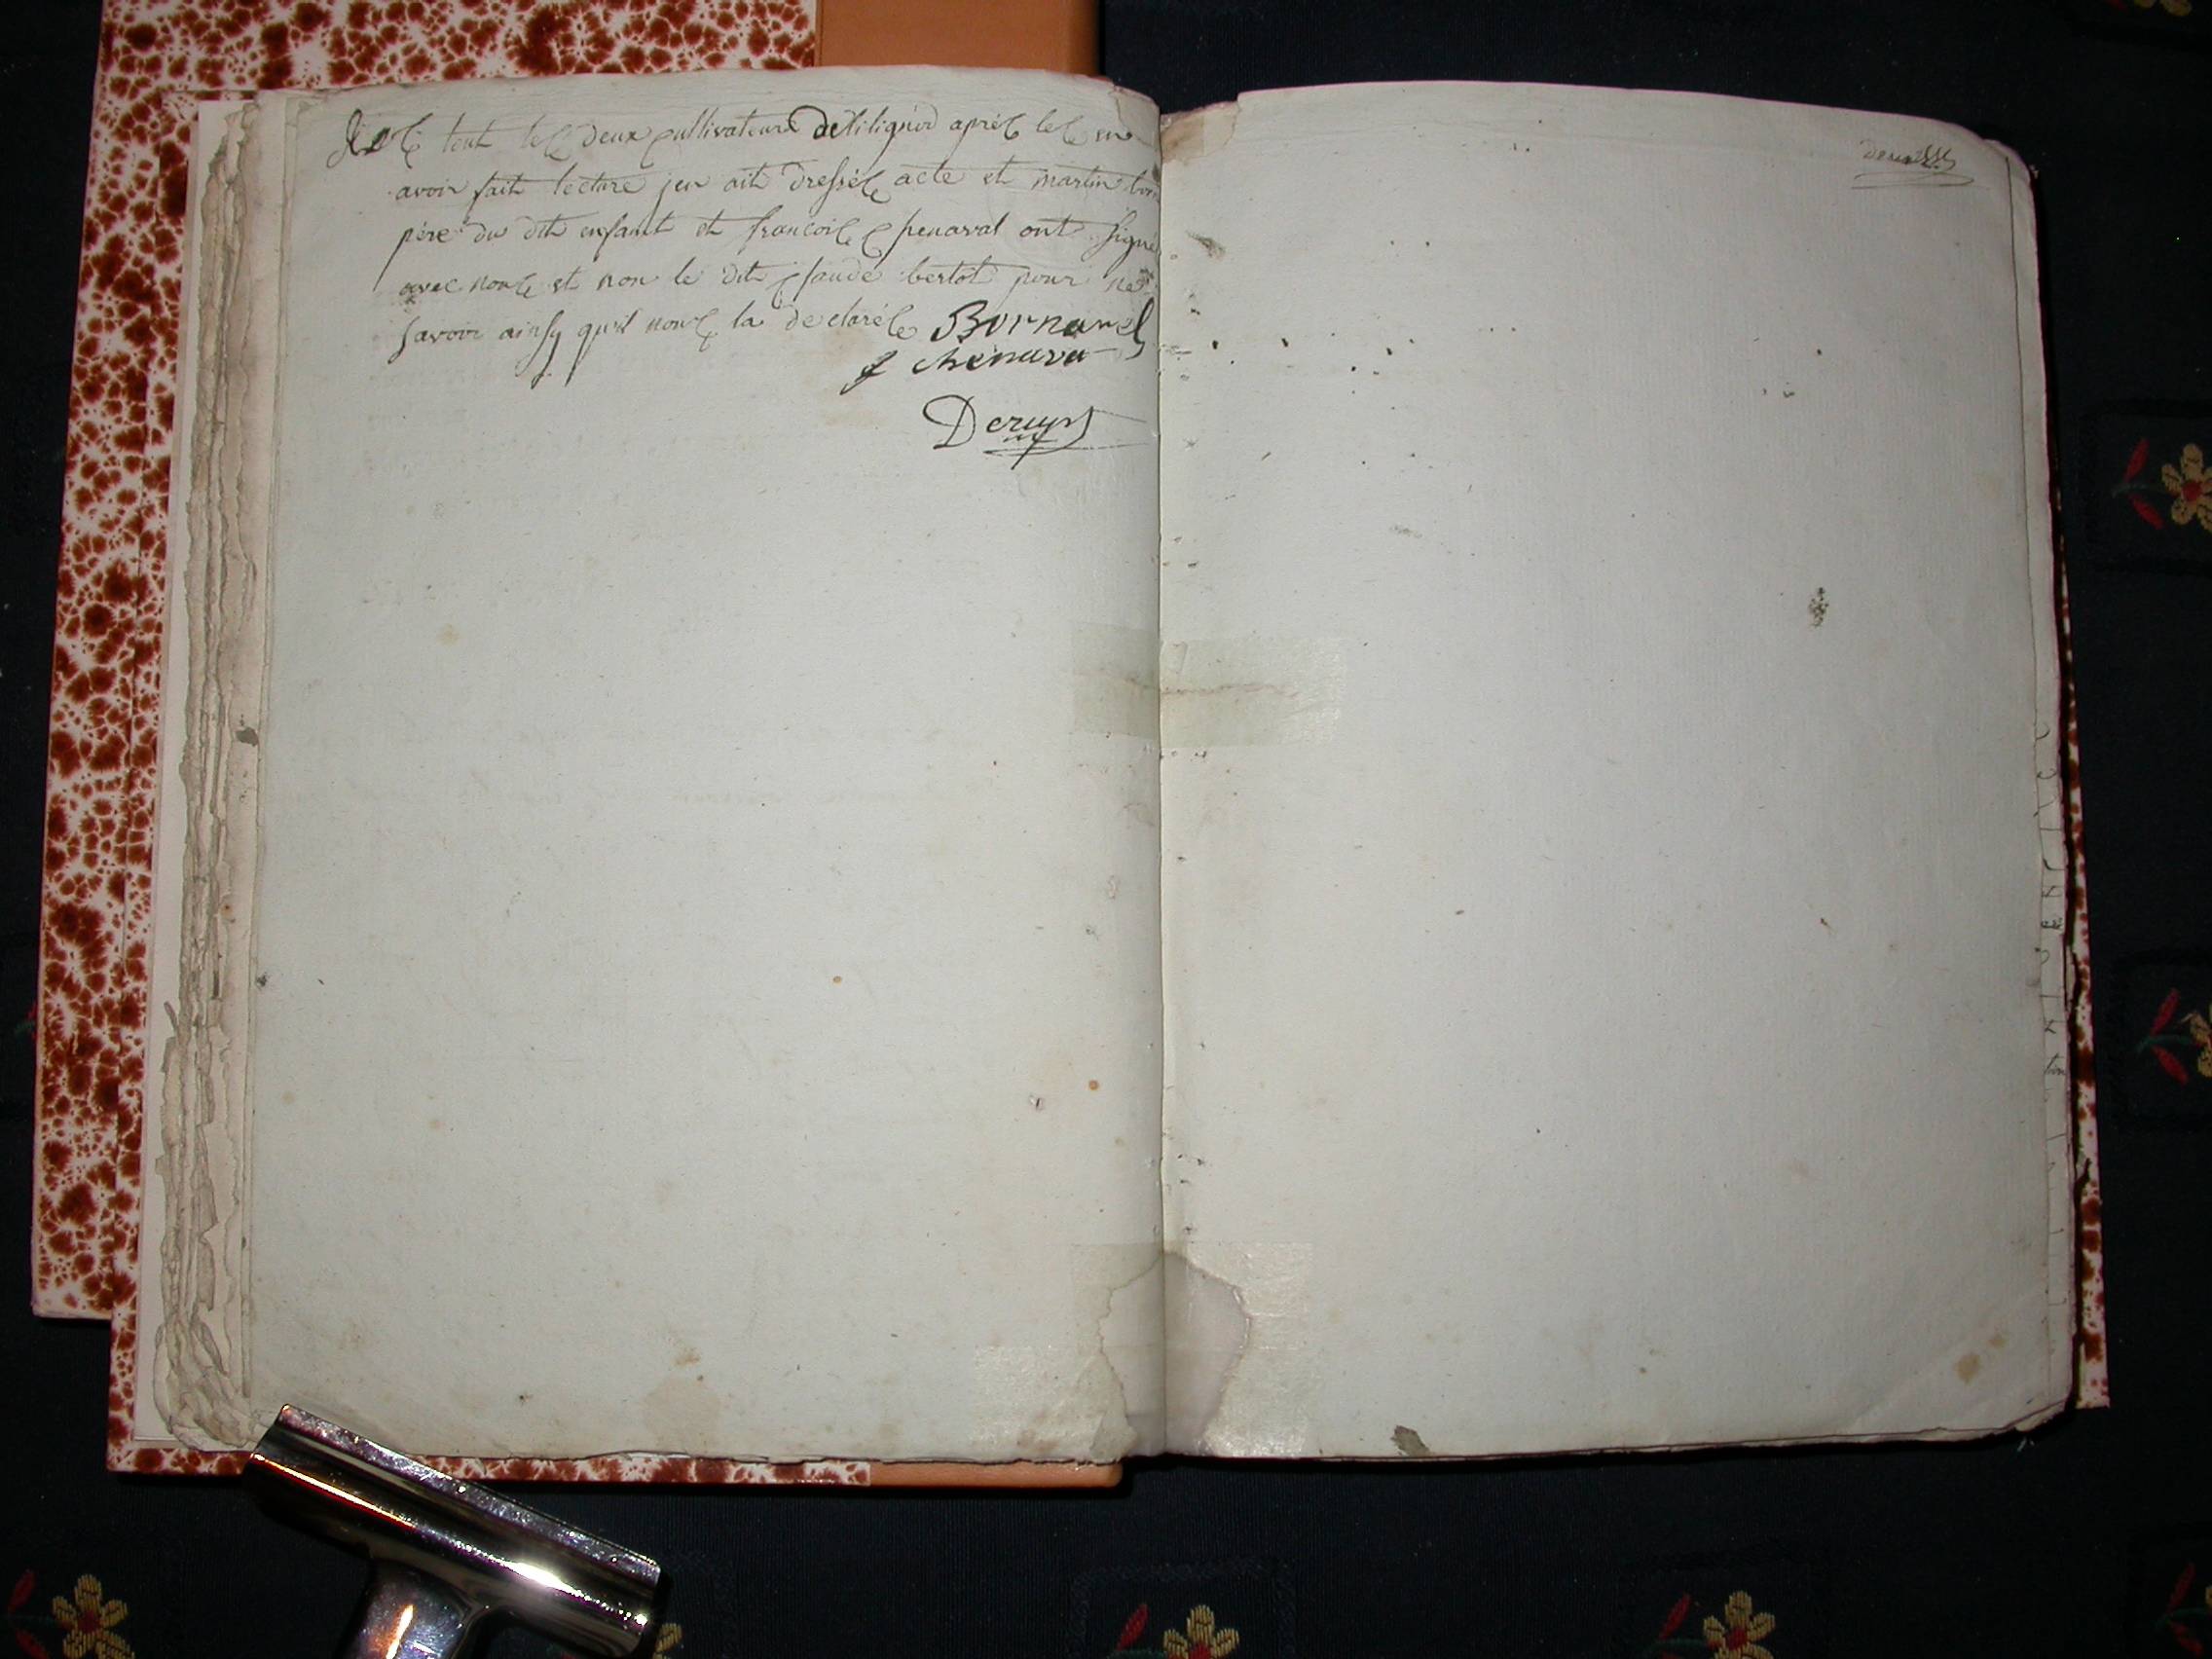 tout les deux cultivateurs de liligniod après les en
avoir fait lecture jen ait dressée acte et martin bor
père du dit enfant et francois chenaval ont signé
avec nous et non le dit claude bertot pour ne
savoir ainsy qu'il nous la declarée Bornarel
f chenava